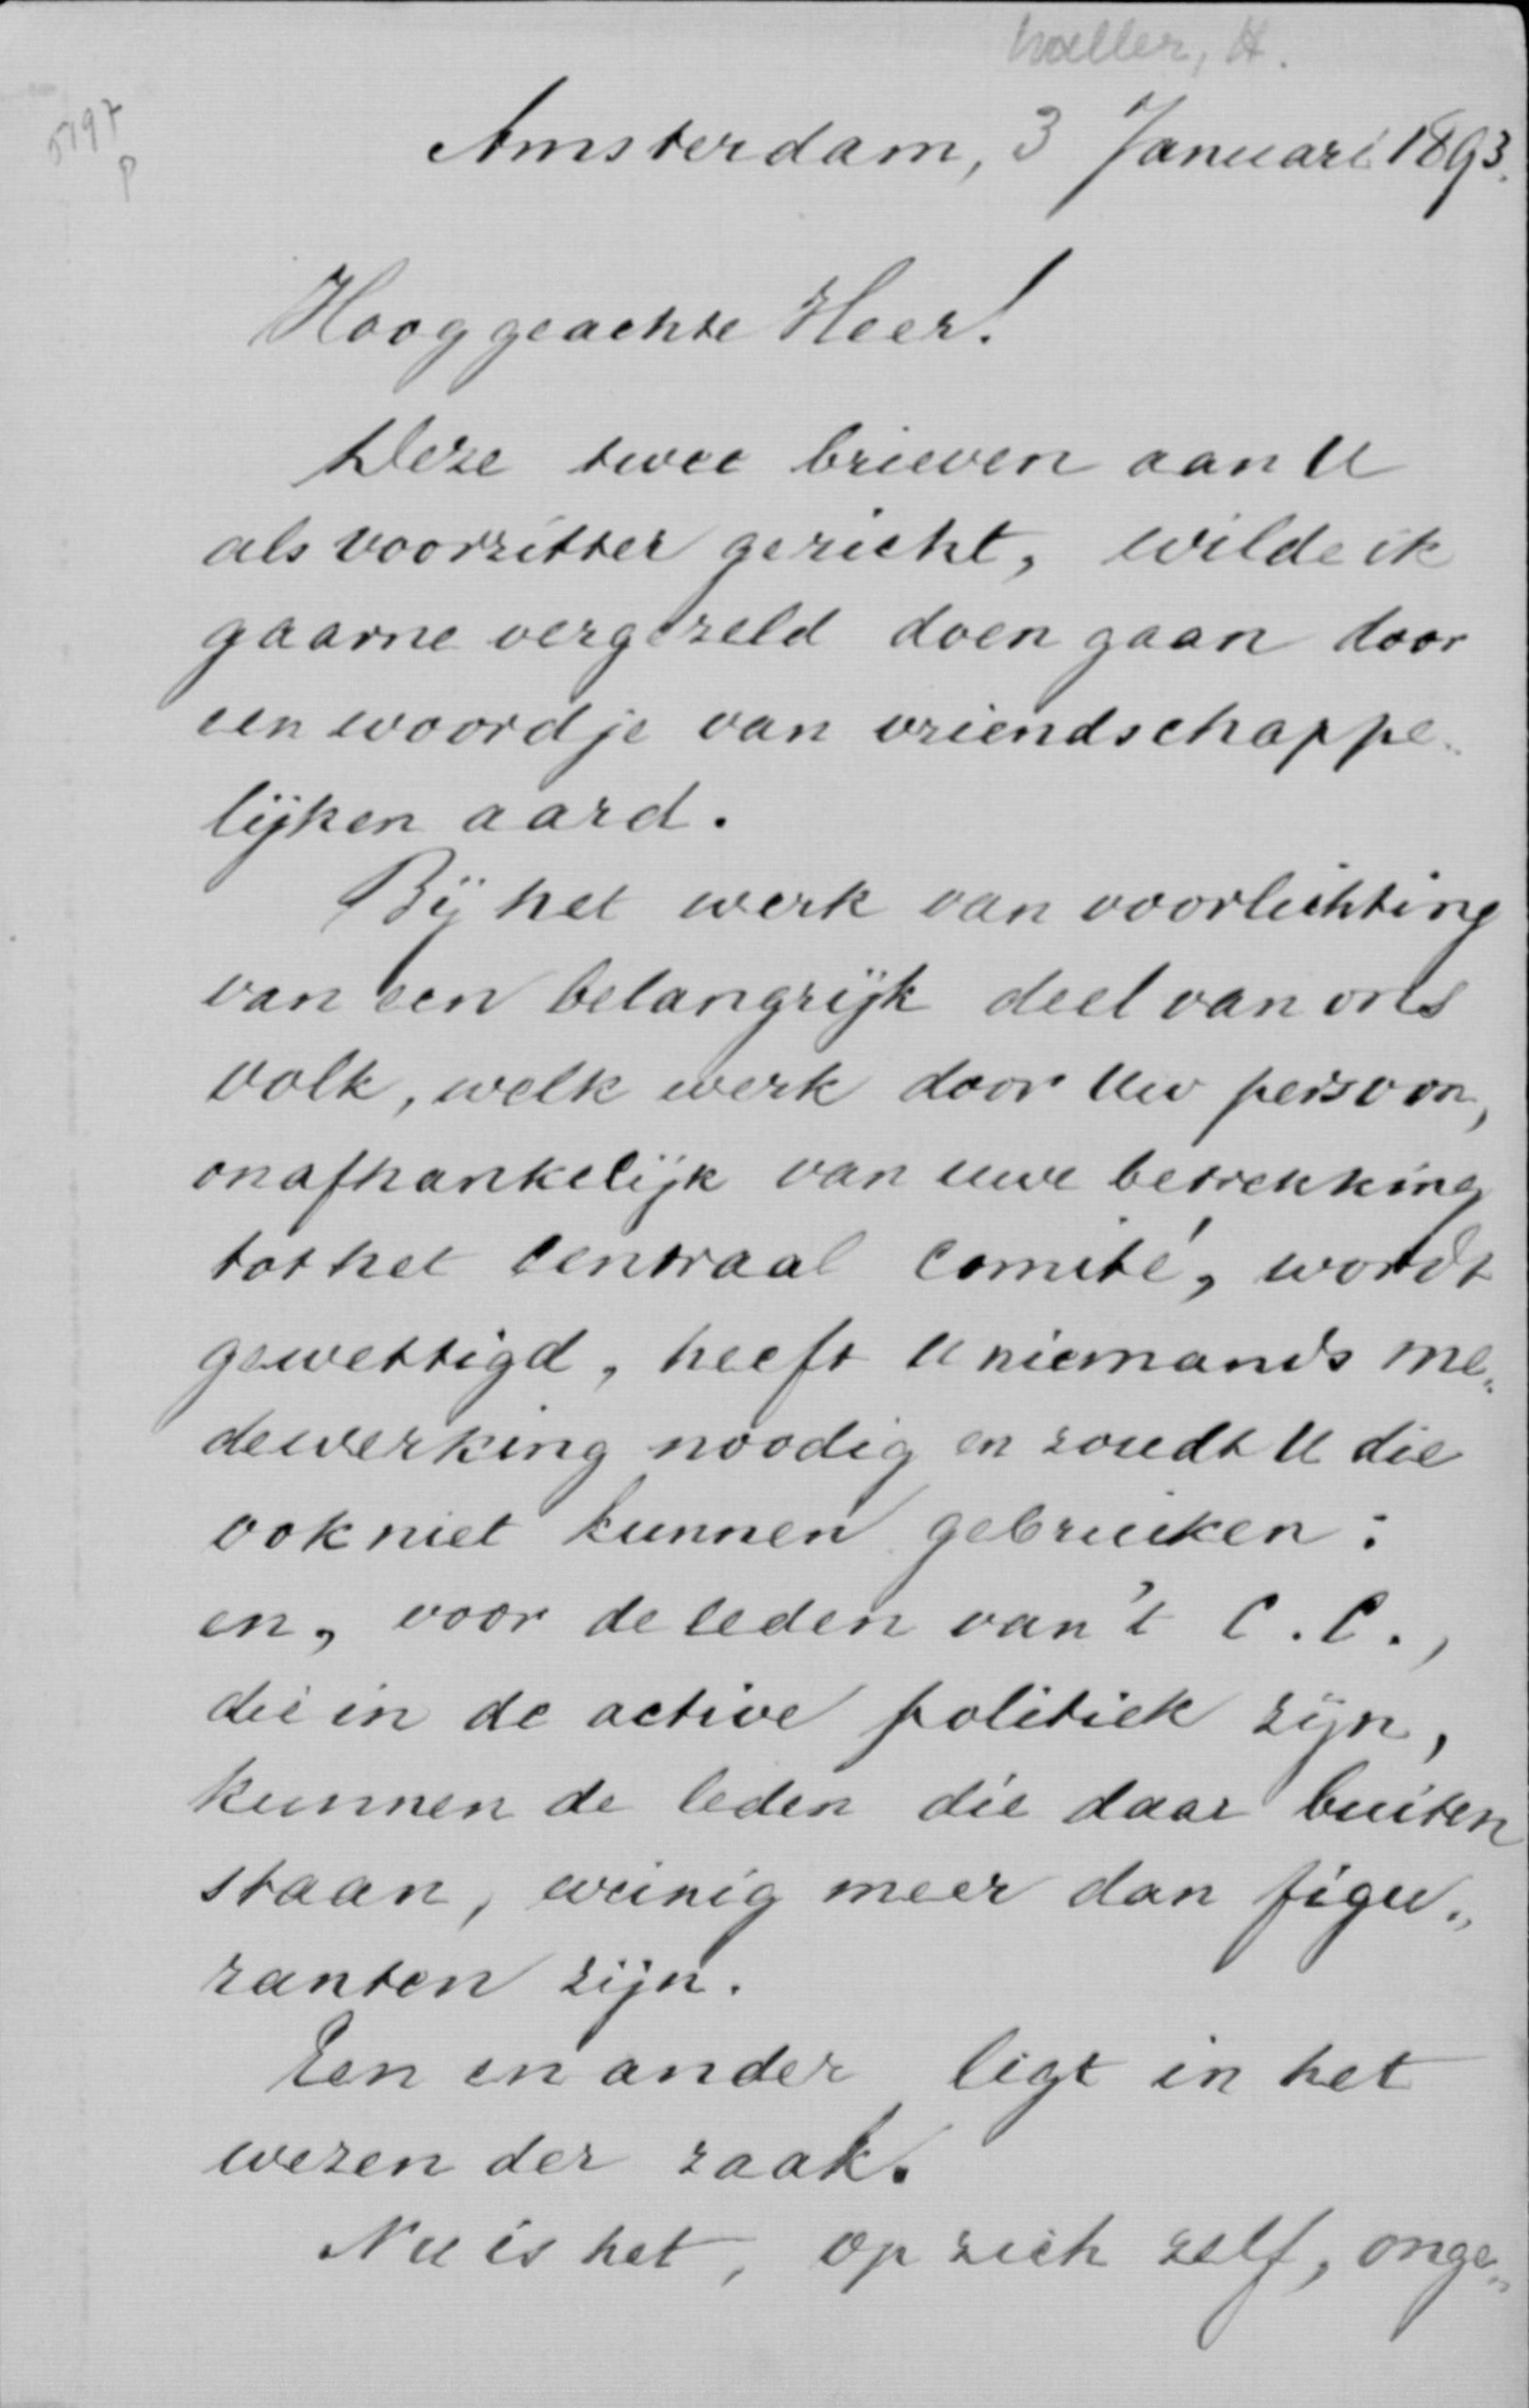 Waller, H.
5197
P
Amsterdam, 3 Januari 1893.
Hooggeachte Heer!
Deze twee brieven aan U
als voorzitter gericht, wilde ik
gaarne vergezeld doen gaan door
een woordje van vriendschappe„
lijken aard.
Bij het werk van voorlichting
van een belangrijk deel van ons
volk, welk werk door Uw persoon,
onafhankelijk van uwe betrekking
tot het Centraal Comité, wordt
gewettigd, heeft U niemands me„
dewerking noodig en zoudt U die
ook niet kunnen gebruiken:
en, voor de leden van 't C.C.,
die in de active politiek zijn,
kunnen de leden die daar buiten
staan, weinig meer dan figu„
ranten zijn.
Een en ander ligt in het
wezen der zaak.
Nu is het, op zich zelf, onge„